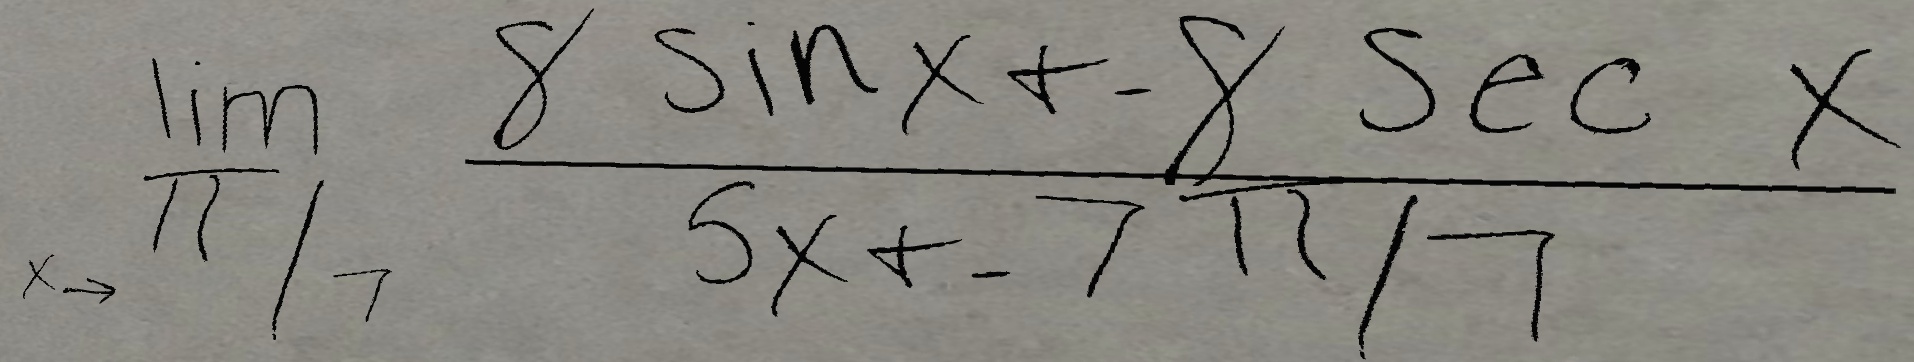 lim x→π/7 (8 sin x + -8 sec x) / (5x + -7π/7)